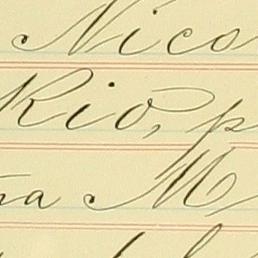 Nico
Rio, p
na M